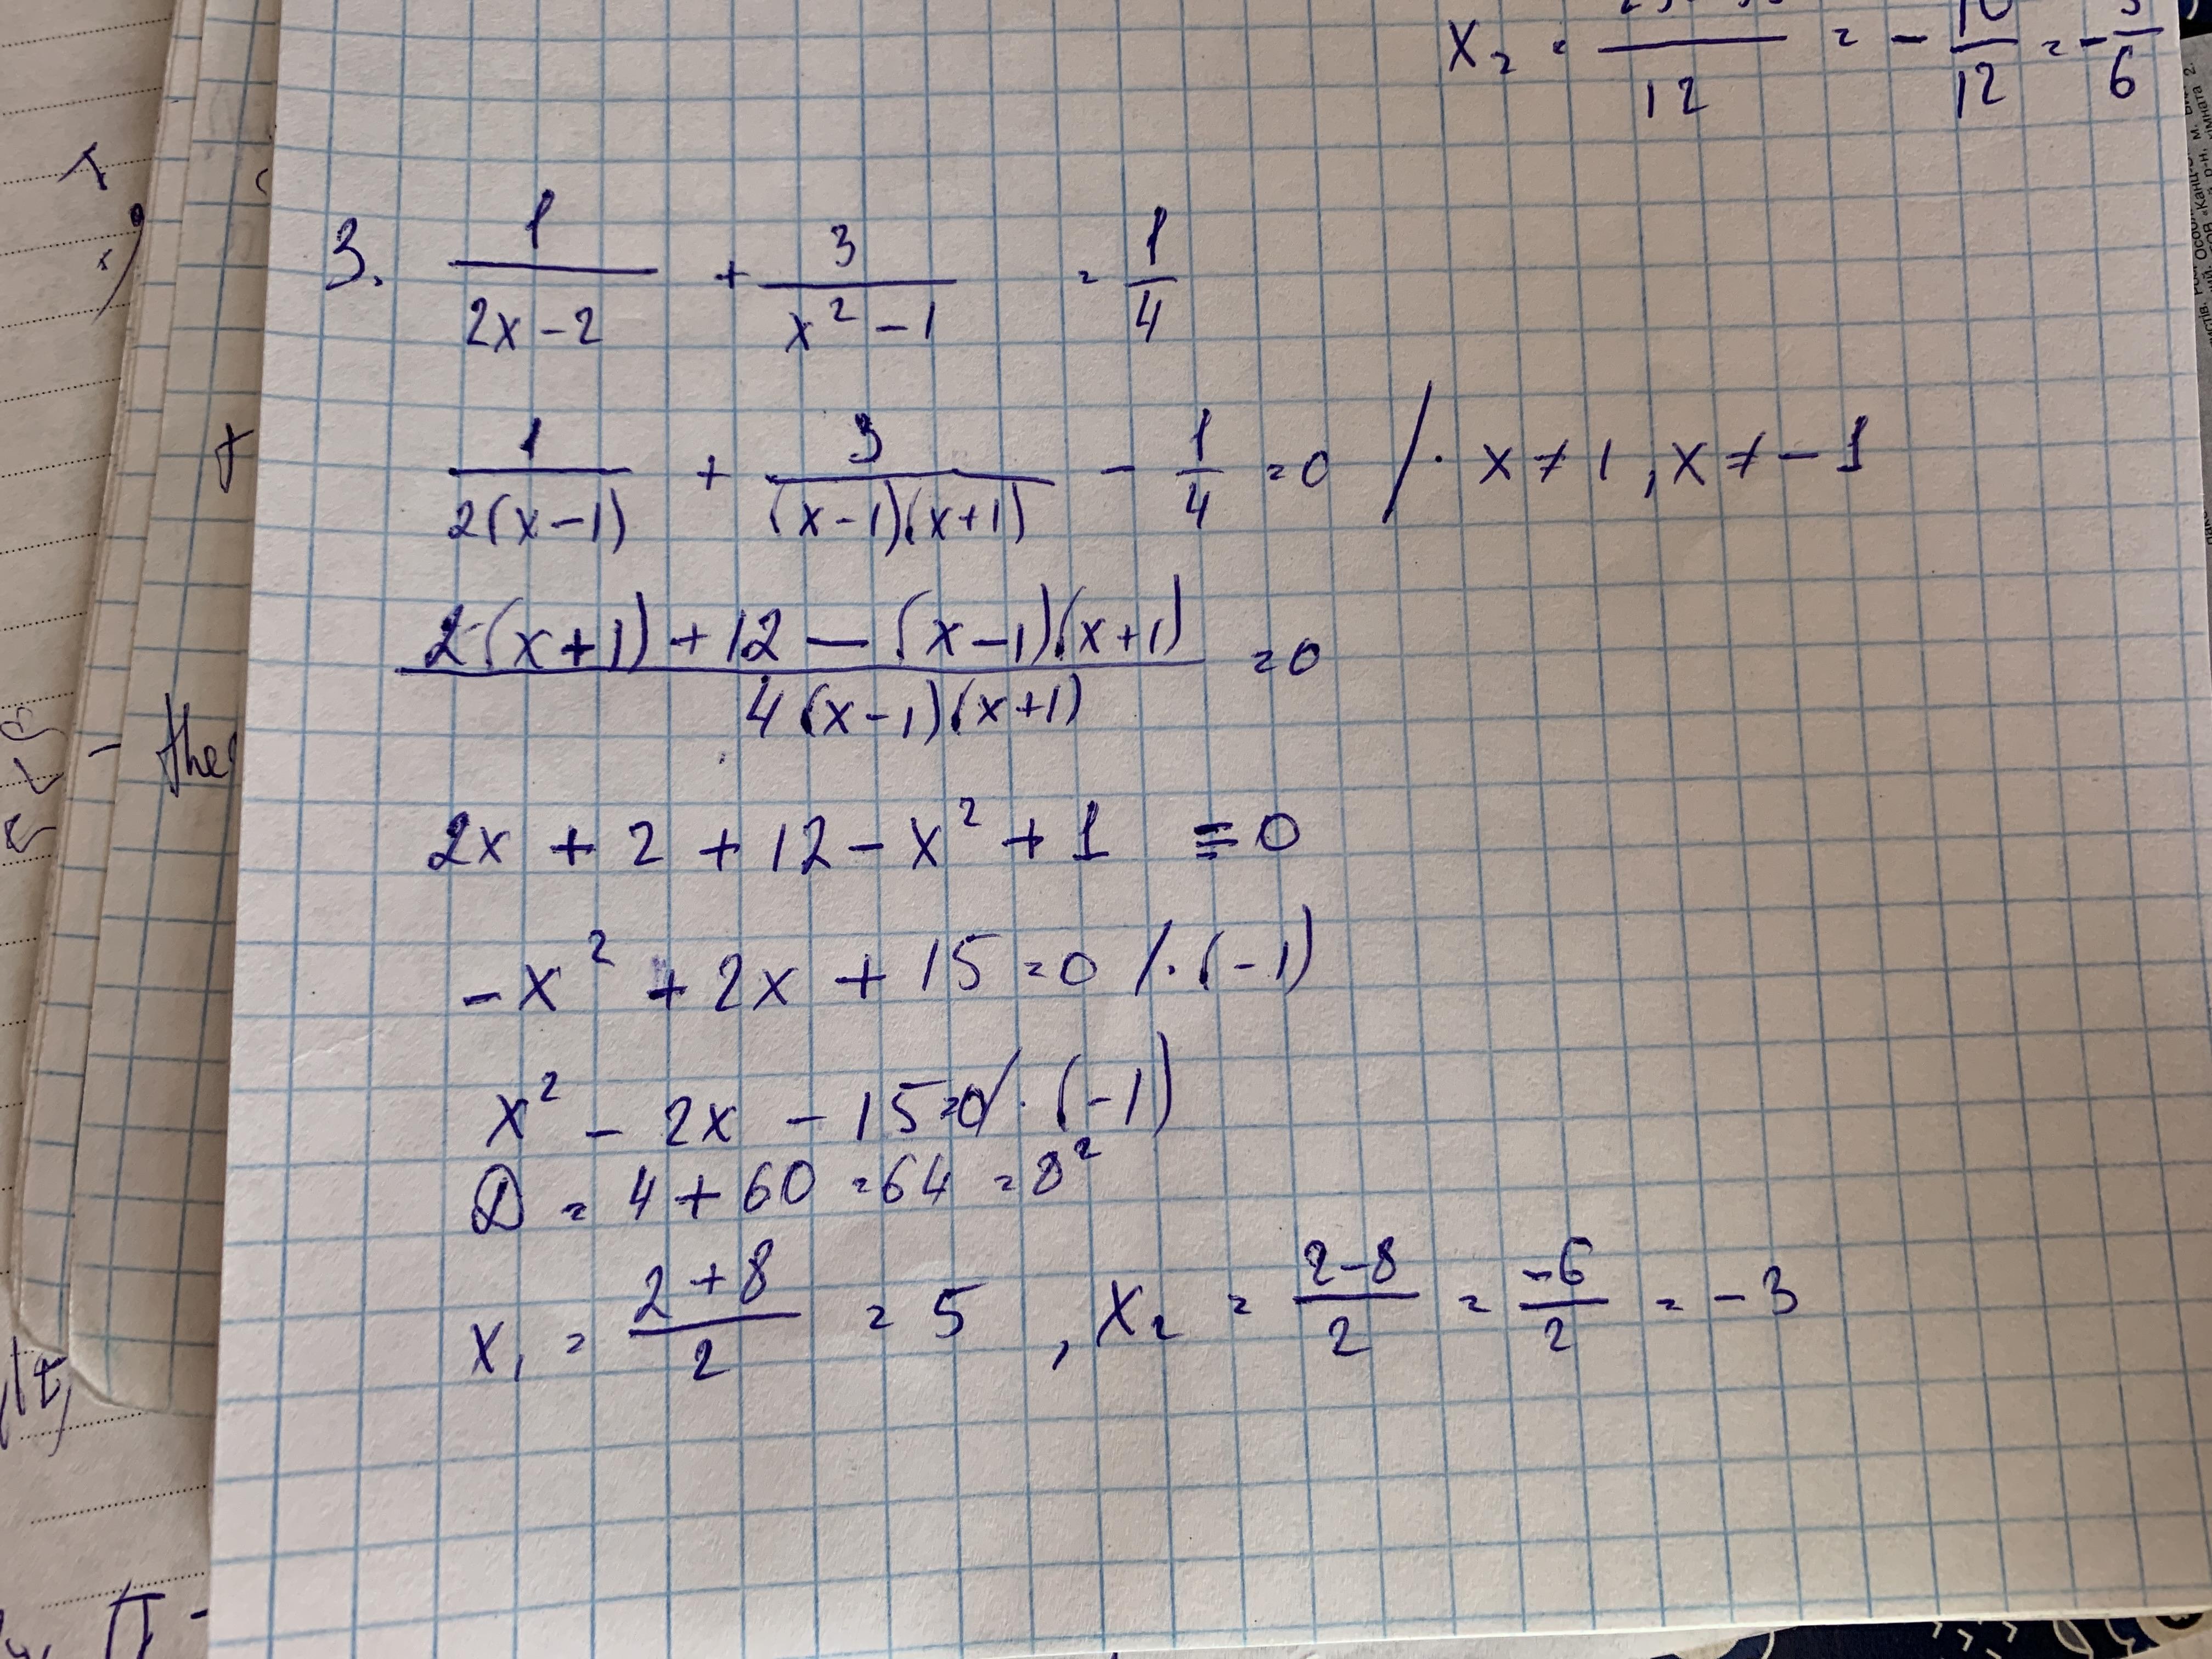 x₂ = ― 12 = - 10/12 = - 5/6
3. 1/(2x-2) + 3/(x²-1) = 1/4
1/(2(x-1)) + 3/((x-1)(x+1)) - 1/4 = 0 /· x ≠ 1, x ≠ -1
(2(x+1) + 12 - (x-1)(x+1))/(4(x-1)(x+1)) = 0
2x + 2 + 12 - x² + 1 = 0
-x² + 2x + 15 = 0 /·(-1)
x² - 2x - 15 = 0 /·(-1)
D = 4 + 60 = 64 = 8²
x₁ = (2+8)/2 = 5, x₂ = (2-8)/2 = -6/2 = -3